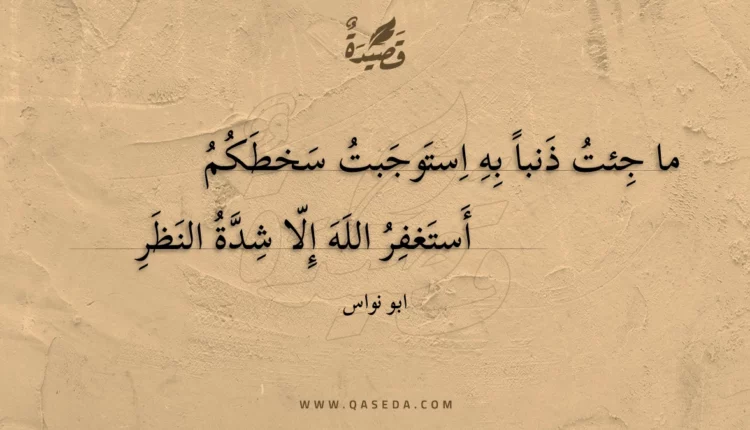 قَصِيدَةٌ
ما جِئتُ ذَنباً بِهِ اِستَوجَبتُ سَخطَكُمُ
أَستَغفِرُ اللَهَ إِلّا شِدَّةُ النَظَرِ
ابو نواس
WWW.QASEDA.COM